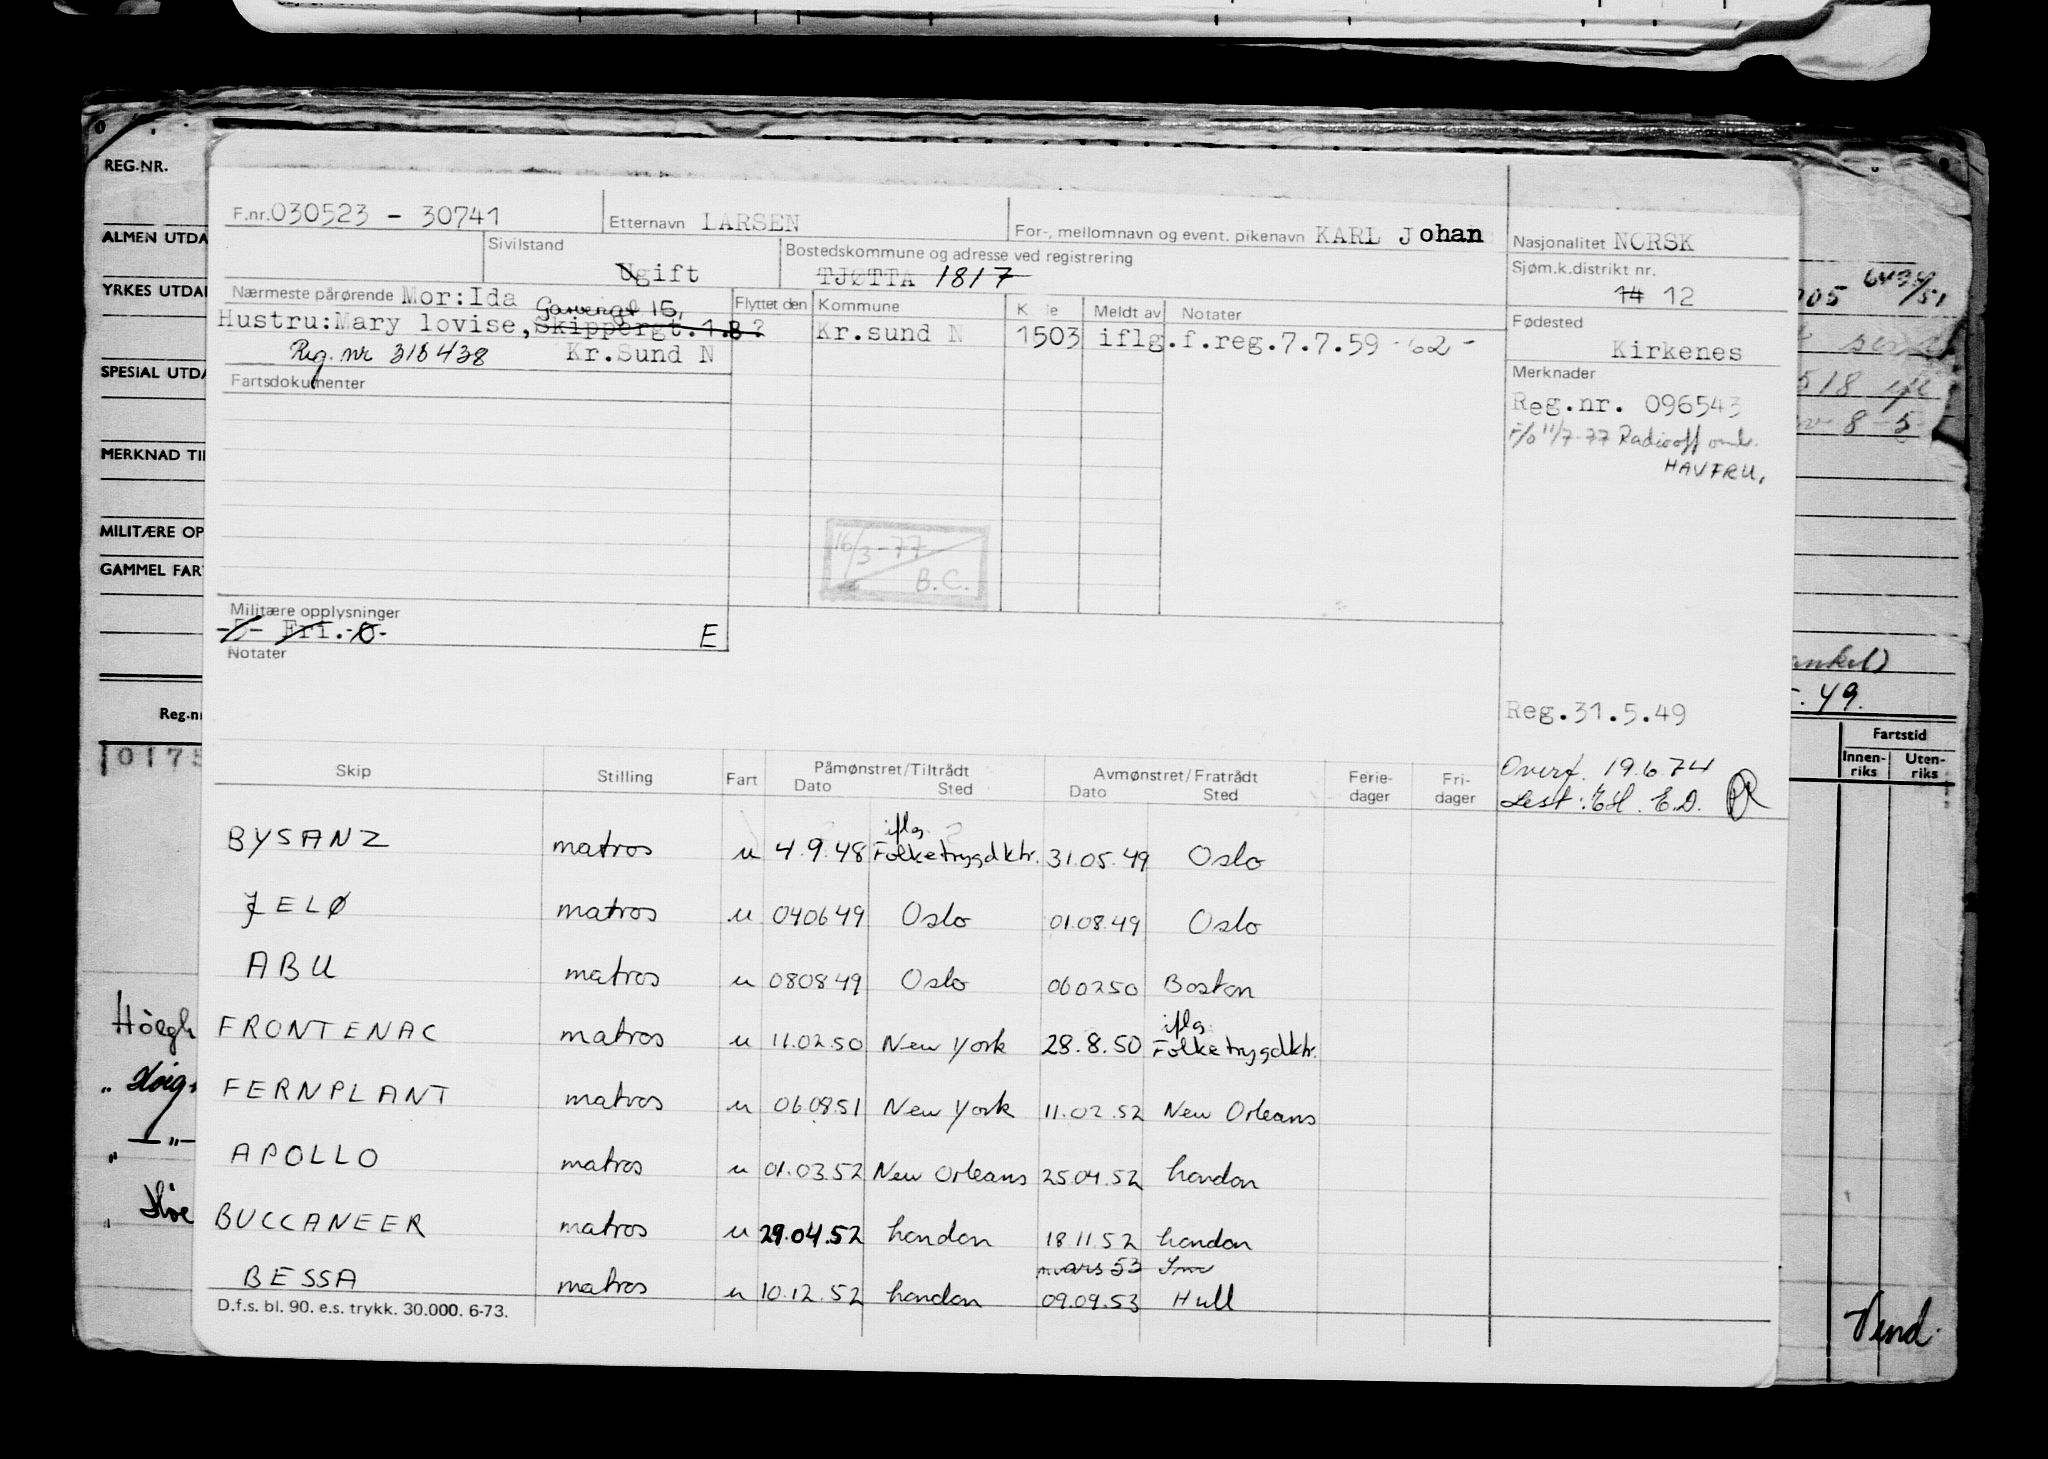 REG.NR.
ALMEN UTDA
YRKES UTDA
SPESIAL UTDA
MERKNAD TI
MILITÆRE OP
GAMMEL FAR
Reg.nr
0175
Høegh
F.nr. 030523 - 30741
Etternavn LARSEN
For-, mellomnavn og event. pikenavn KARL Johan
Nasjonalitet NORSK
Sivilstand
Ugift
Bostedskommune og adresse ved registrering
TJØTTA 1817
Sjøm.k.distrikt nr.
14 12
Nærmeste pårørende Mor:Ida
Hustru:Mary lovise, Skippergt.1.B ?
Reg. nr 316438 Kr.Sund N
Flyttet den
Kommune
Meldt av
Notater
Kr.sund N 1503 iflg.f.reg.7.7.59 -62-
Fødested
Kirkenes
Fartsdokumenter
Merknader
Reg.nr. 096543
F/o 11/7-77 Radiooff omb.
HAVFRU.
16/3-77
B.C.
Militære opplysninger
Fri. E
Notater
Reg.31.5.49
Overf. 19.6.74
Lest: EH. E.D.
Skip Stilling Fart Påmønstret/Tiltrådt Dato Sted Avmønstret/Fratrådt Dato Sted Ferie-dager Fri-dager
BYSANZ matros u 4.9.48 iflg. Folketrygdktr. 31.05.49 Oslo
JELØ matros u 040649 Oslo 01.08.49 Oslo
ABU matros u 080849 Oslo 060250 Boston
FRONTENAC matros u 11.02.50 New York 28.8.50 iflg. Folketrygdktr.
FERNPLANT matros u 060851 New York 11.02.52 New Orleans
APOLLO matros u 01.03.52 New Orleans 25.04.52 London
BUCCANEER matros u 29.04.52 London 18.11.52 London
mars 53
BESSA matros u 10.12.52 London 09.09.53 Hull
D.f.s. bl. 90. e.s. trykk. 30.000. 6-73.
49.
Fartstid
Innen-riks
Uten-riks
Vend.